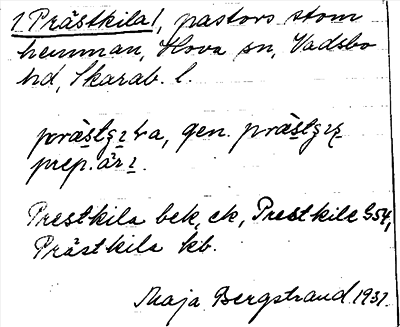 1 Prästkila/, pastors stom
hemman, Hova sn, Vadsbo
hd, Skarab. l.
gen.
prep. äri.
Prestkila bek, ek, Prestkile G54,
Prästkila kb.
Maja Bergstrand 1931.